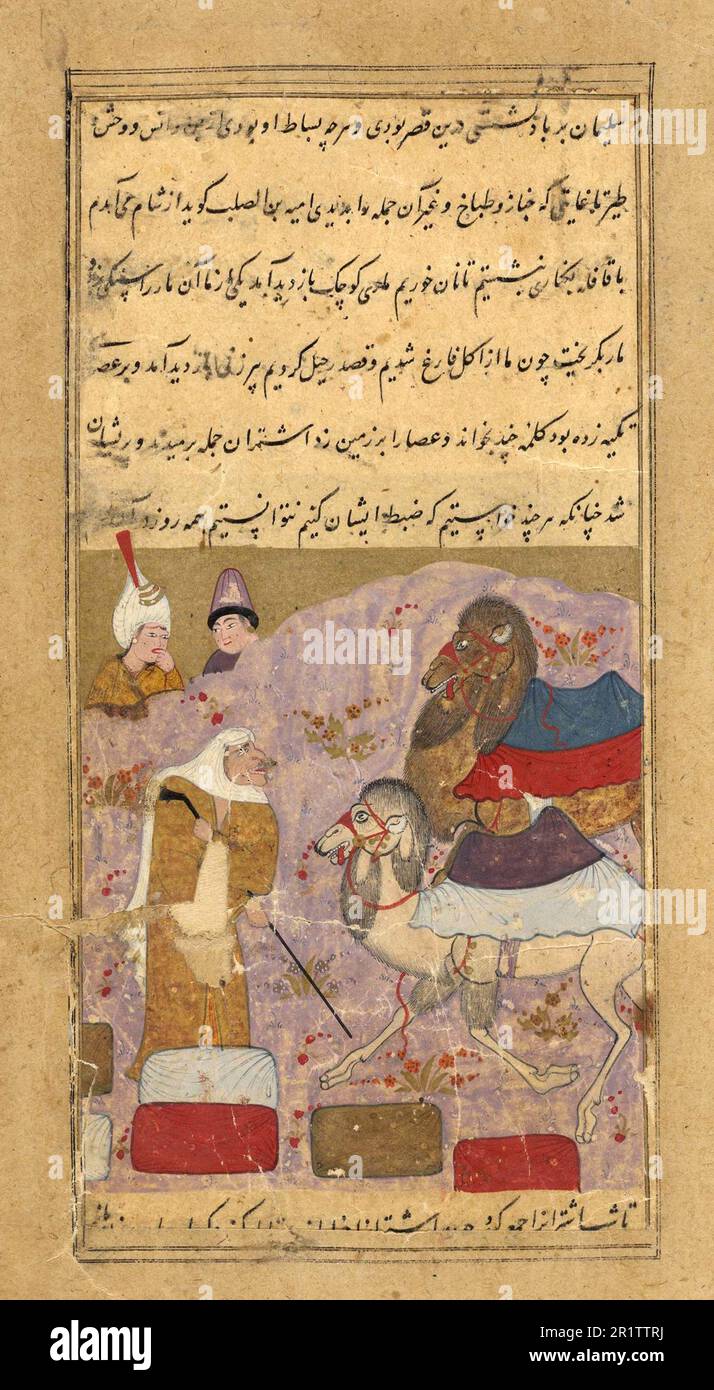 سلیمان بر باد نشستی درین قصر بودی و هرچه بساط او بودی از جن و انس و وحش و
طیر تا غایتی که خباز و طباخ و غیر آن جمله وا بدیدی امیه بن الصلب کوید از شام می آمدم
با قافله بنشستیم تا نان خوریم ماری کوچک باز دید آمد یکی از ما آن مار را سنکی زد
مار بکریخت چون ما از اکل فارغ شدیم و قصد رحیل کردیم پیر زنی باز دید آمد و بر عصا
تکیه زده بود کلمهٔ چند بخواند و عصا را بر زمین زد اشتران جمله برمیدند و پریشان
شد چنانکه هرچند خواستیم که ضبط ایشان کنیم نتوانستیم همه روز در آن
تا شب اشتران را جمع کردیم
alamy
alamy
Image ID: 2R1TTRJ
www.alamy.com